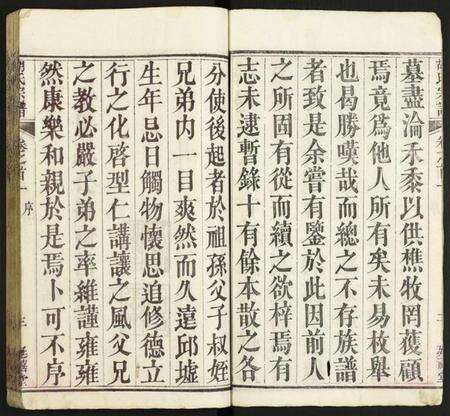 胡氏宗譜
卷之首
墓盡淪禾黍以供樵牧罔獲顧
焉竟為他人所有矣未易枚舉
也曷勝嘆哉而總之不存族譜
者致是余嘗有鑒於此因前人
之所固有從而續之欲梓焉有
志未逮暫錄十有餘本散之各
分使後起者於祖孫父子叔姪
兄弟內一目爽然而久遠邱墟
生年忌日觸物懷思追修德立
行之化啓型仁講讓之風父兄
之教必嚴子弟之率維謹雍雍
然康樂和親於是焉卜可不序
胡氏宗譜
卷之首一 序
三